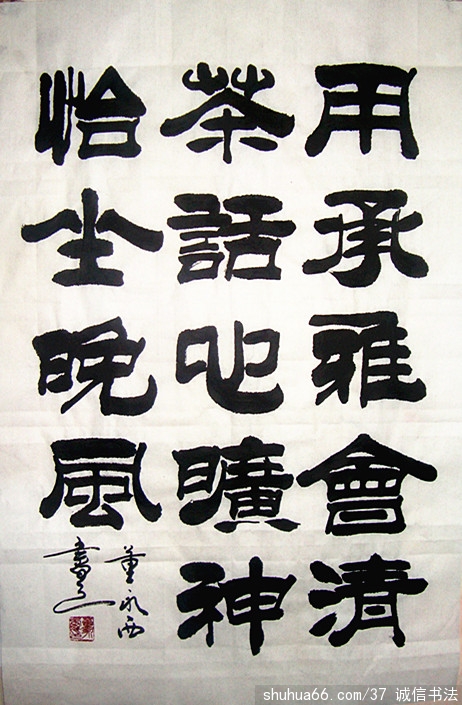 用承雅會清
茶話心曠神
怡坐晚風
董永西
書
shuhua66.com/37 诚信书法